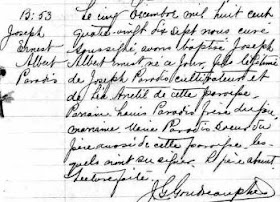 B. 53
Joseph
Ernest
Albert
Paradis
Le cinq Decembre mil huit cent
quatre-vingt dix sept nous curé
soussigné, avons baptisé Joseph
Albert Ernest né ce jour, fils légitime
de Joseph Paradis cultivateur et
de Léa Anctil de cette paroisse
Parrain Louis Paradis frère du
marraine Marie Paradis soeur du
père aussi de cette paroisse les-
quels n'ont su signer. Le père absent
Lecture faite.